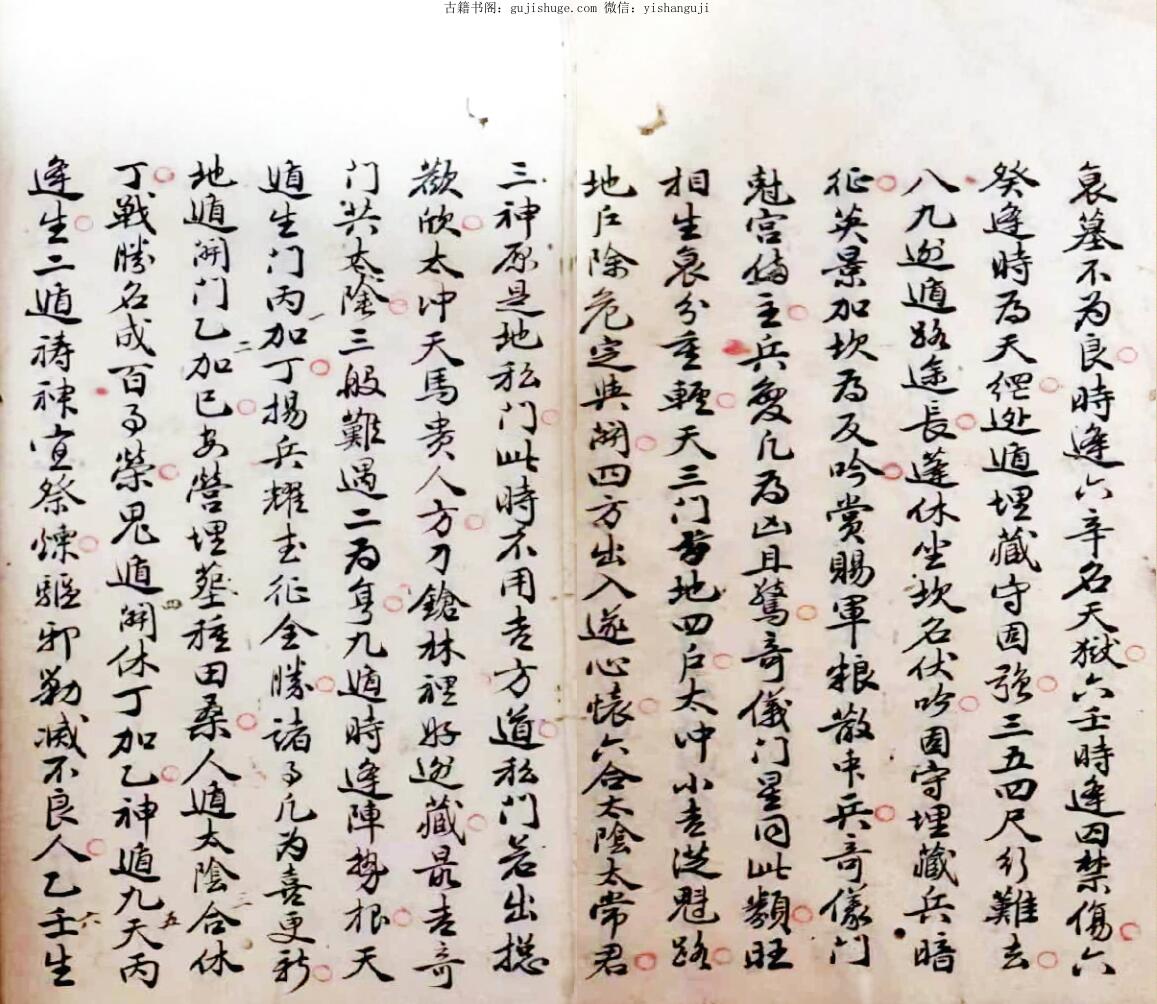 古籍书阁：gujishuge.com 微信：yishanguji
衰墓不为良時逢六辛名天獄六壬時逢囚禁傷六
癸逢時为天網逃遁埋藏守固強三五四尺行難去
八九逃遁路途長蓬休坐坎名伏吟固守埋藏兵暗
征英景加坎为反吟賞賜軍粮散中兵奇儀門
尅宮偏主兵變凡为凶且驚奇儀門星同此類旺
相生衰分重輕天三門方地四戶太冲小吉從魁路
地戶除危定與開四方出入遂心懷六合太陰太常君
三神原是地私門此時不用吉方道私門若出捴
歡欣太冲天馬貴人方刀鎗林裡好逃藏最吉奇
門共太陰三般難遇二为真九遁時逢陣勢根天
遁生門丙加丁揚兵耀武征全勝諸事凡为喜更新
地遁開門乙加己安營埋墓種田桑人遁太陰合休
丁戰勝名成百事榮鬼遁開休丁加乙神遁九天丙
逢生二遁祷神宜祭煉驅邪勒滅不良人乙壬生
一
二
三
四
五
六